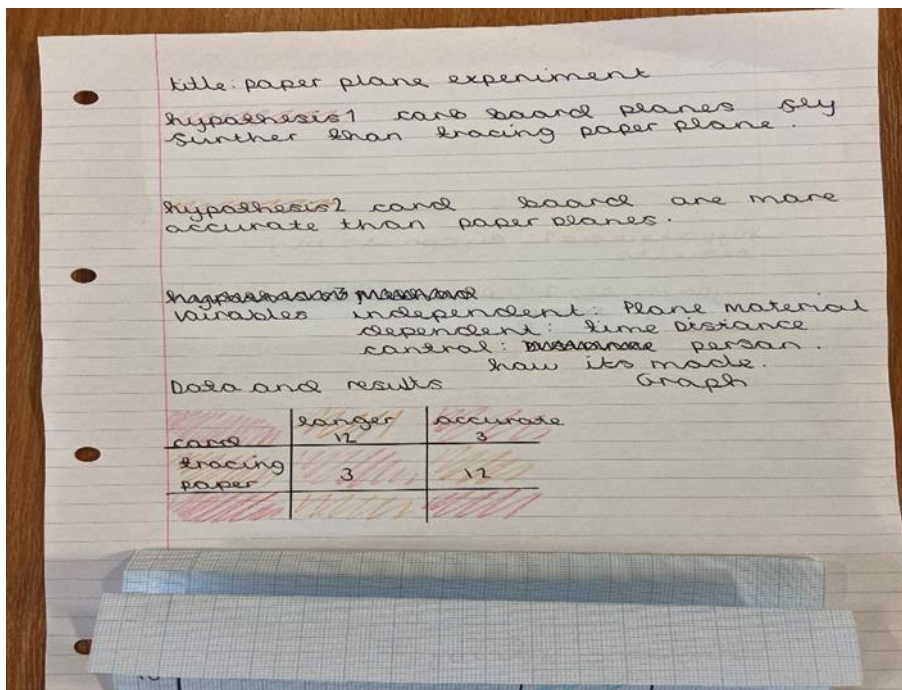 title: paper plane experiment
hypothesis1 card board planes fly
further than tracing paper plane.
hypothesis2 card board are more
accurate than paper planes.
vairables independent: Plane material
dependent: time Distance
control: person.
how its made.
Data and results Graph
longer accurate
card 12 3
tracing
paper 3 12